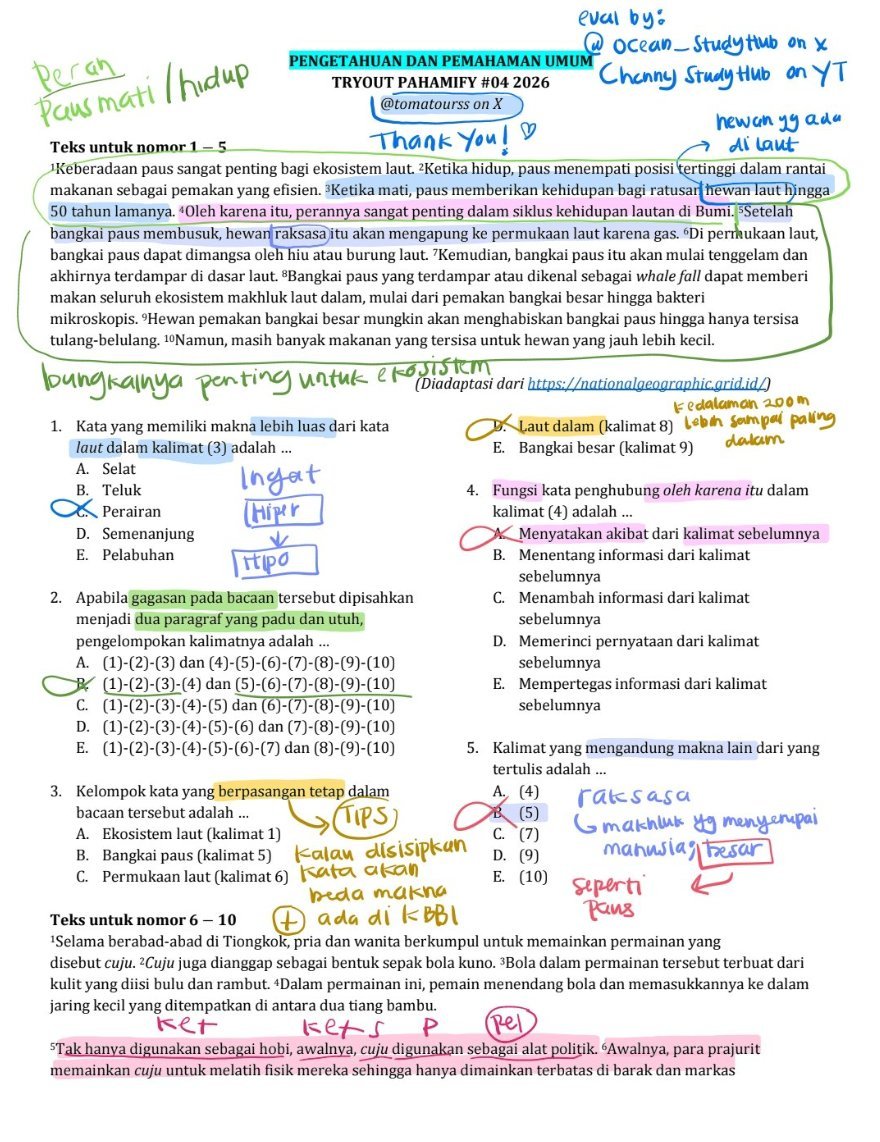 eval by:
@ Ocean_StudyHub on X
Channy StudyHub on YT
PENGETAHUAN DAN PEMAHAMAN UMUM
TRYOUT PAHAMIFY #04 2026
@tomatourss on X
Thank You!
Peran
Paus mati / hidup
hewan yg ada
di laut
Teks untuk nomor 1 – 5
¹Keberadaan paus sangat penting bagi ekosistem laut. ²Ketika hidup, paus menempati posisi tertinggi dalam rantai
makanan sebagai pemakan yang efisien. ³Ketika mati, paus memberikan kehidupan bagi ratusan hewan laut hingga
50 tahun lamanya. ⁴Oleh karena itu, perannya sangat penting dalam siklus kehidupan lautan di Bumi. ⁵Setelah
bangkai paus membusuk, hewan raksasa itu akan mengapung ke permukaan laut karena gas. ⁶Di permukaan laut,
bangkai paus dapat dimangsa oleh hiu atau burung laut. ⁷Kemudian, bangkai paus itu akan mulai tenggelam dan
akhirnya terdampar di dasar laut. ⁸Bangkai paus yang terdampar atau dikenal sebagai whale fall dapat memberi
makan seluruh ekosistem makhluk laut dalam, mulai dari pemakan bangkai besar hingga bakteri
mikroskopis. ⁹Hewan pemakan bangkai besar mungkin akan menghabiskan bangkai paus hingga hanya tersisa
tulang-belulang. ¹⁰Namun, masih banyak makanan yang tersisa untuk hewan yang jauh lebih kecil.
bungkainya penting untuk ekosistem
(Diadaptasi dari https://nationalgeographic.grid.id/)
1. Kata yang memiliki makna lebih luas dari kata
laut dalam kalimat (3) adalah ...
A. Selat
B. Teluk
C. Perairan
D. Semenanjung
E. Pelabuhan
Ingat
Hiper
Hipo
2. Apabila gagasan pada bacaan tersebut dipisahkan
menjadi dua paragraf yang padu dan utuh,
pengelompokan kalimatnya adalah ...
A. (1)-(2)-(3) dan (4)-(5)-(6)-(7)-(8)-(9)-(10)
B. (1)-(2)-(3)-(4) dan (5)-(6)-(7)-(8)-(9)-(10)
C. (1)-(2)-(3)-(4)-(5) dan (6)-(7)-(8)-(9)-(10)
D. (1)-(2)-(3)-(4)-(5)-(6) dan (7)-(8)-(9)-(10)
E. (1)-(2)-(3)-(4)-(5)-(6)-(7) dan (8)-(9)-(10)
3. Kelompok kata yang berpasangan tetap dalam
bacaan tersebut adalah ...
A. Ekosistem laut (kalimat 1)
B. Bangkai paus (kalimat 5)
C. Permukaan laut (kalimat 6)
TIPS
Kalau disisipkan
kata akan
beda makna
+ ada di KBBI
D. Laut dalam (kalimat 8)
E. Bangkai besar (kalimat 9)
kedalaman 200m
lebih sampai paling
dalam
4. Fungsi kata penghubung oleh karena itu dalam
kalimat (4) adalah ...
A. Menyatakan akibat dari kalimat sebelumnya
B. Menentang informasi dari kalimat
sebelumnya
C. Menambah informasi dari kalimat
sebelumnya
D. Memerinci pernyataan dari kalimat
sebelumnya
E. Mempertegas informasi dari kalimat
sebelumnya
5. Kalimat yang mengandung makna lain dari yang
tertulis adalah ...
A. (4)
B. (5)
C. (7)
D. (9)
E. (10)
raksasa
makhluk yg menyerupai
manusia; besar
seperti
paus
Teks untuk nomor 6 – 10
¹Selama berabad-abad di Tiongkok, pria dan wanita berkumpul untuk memainkan permainan yang
disebut cuju. ²Cuju juga dianggap sebagai bentuk sepak bola kuno. ³Bola dalam permainan tersebut terbuat dari
kulit yang diisi bulu dan rambut. ⁴Dalam permainan ini, pemain menendang bola dan memasukkannya ke dalam
jaring kecil yang ditempatkan di antara dua tiang bambu.
ket ket S P Pel
⁵Tak hanya digunakan sebagai hobi, awalnya, cuju digunakan sebagai alat politik. ⁶Awalnya, para prajurit
memainkan cuju untuk melatih fisik mereka sehingga hanya dimainkan terbatas di barak dan markas